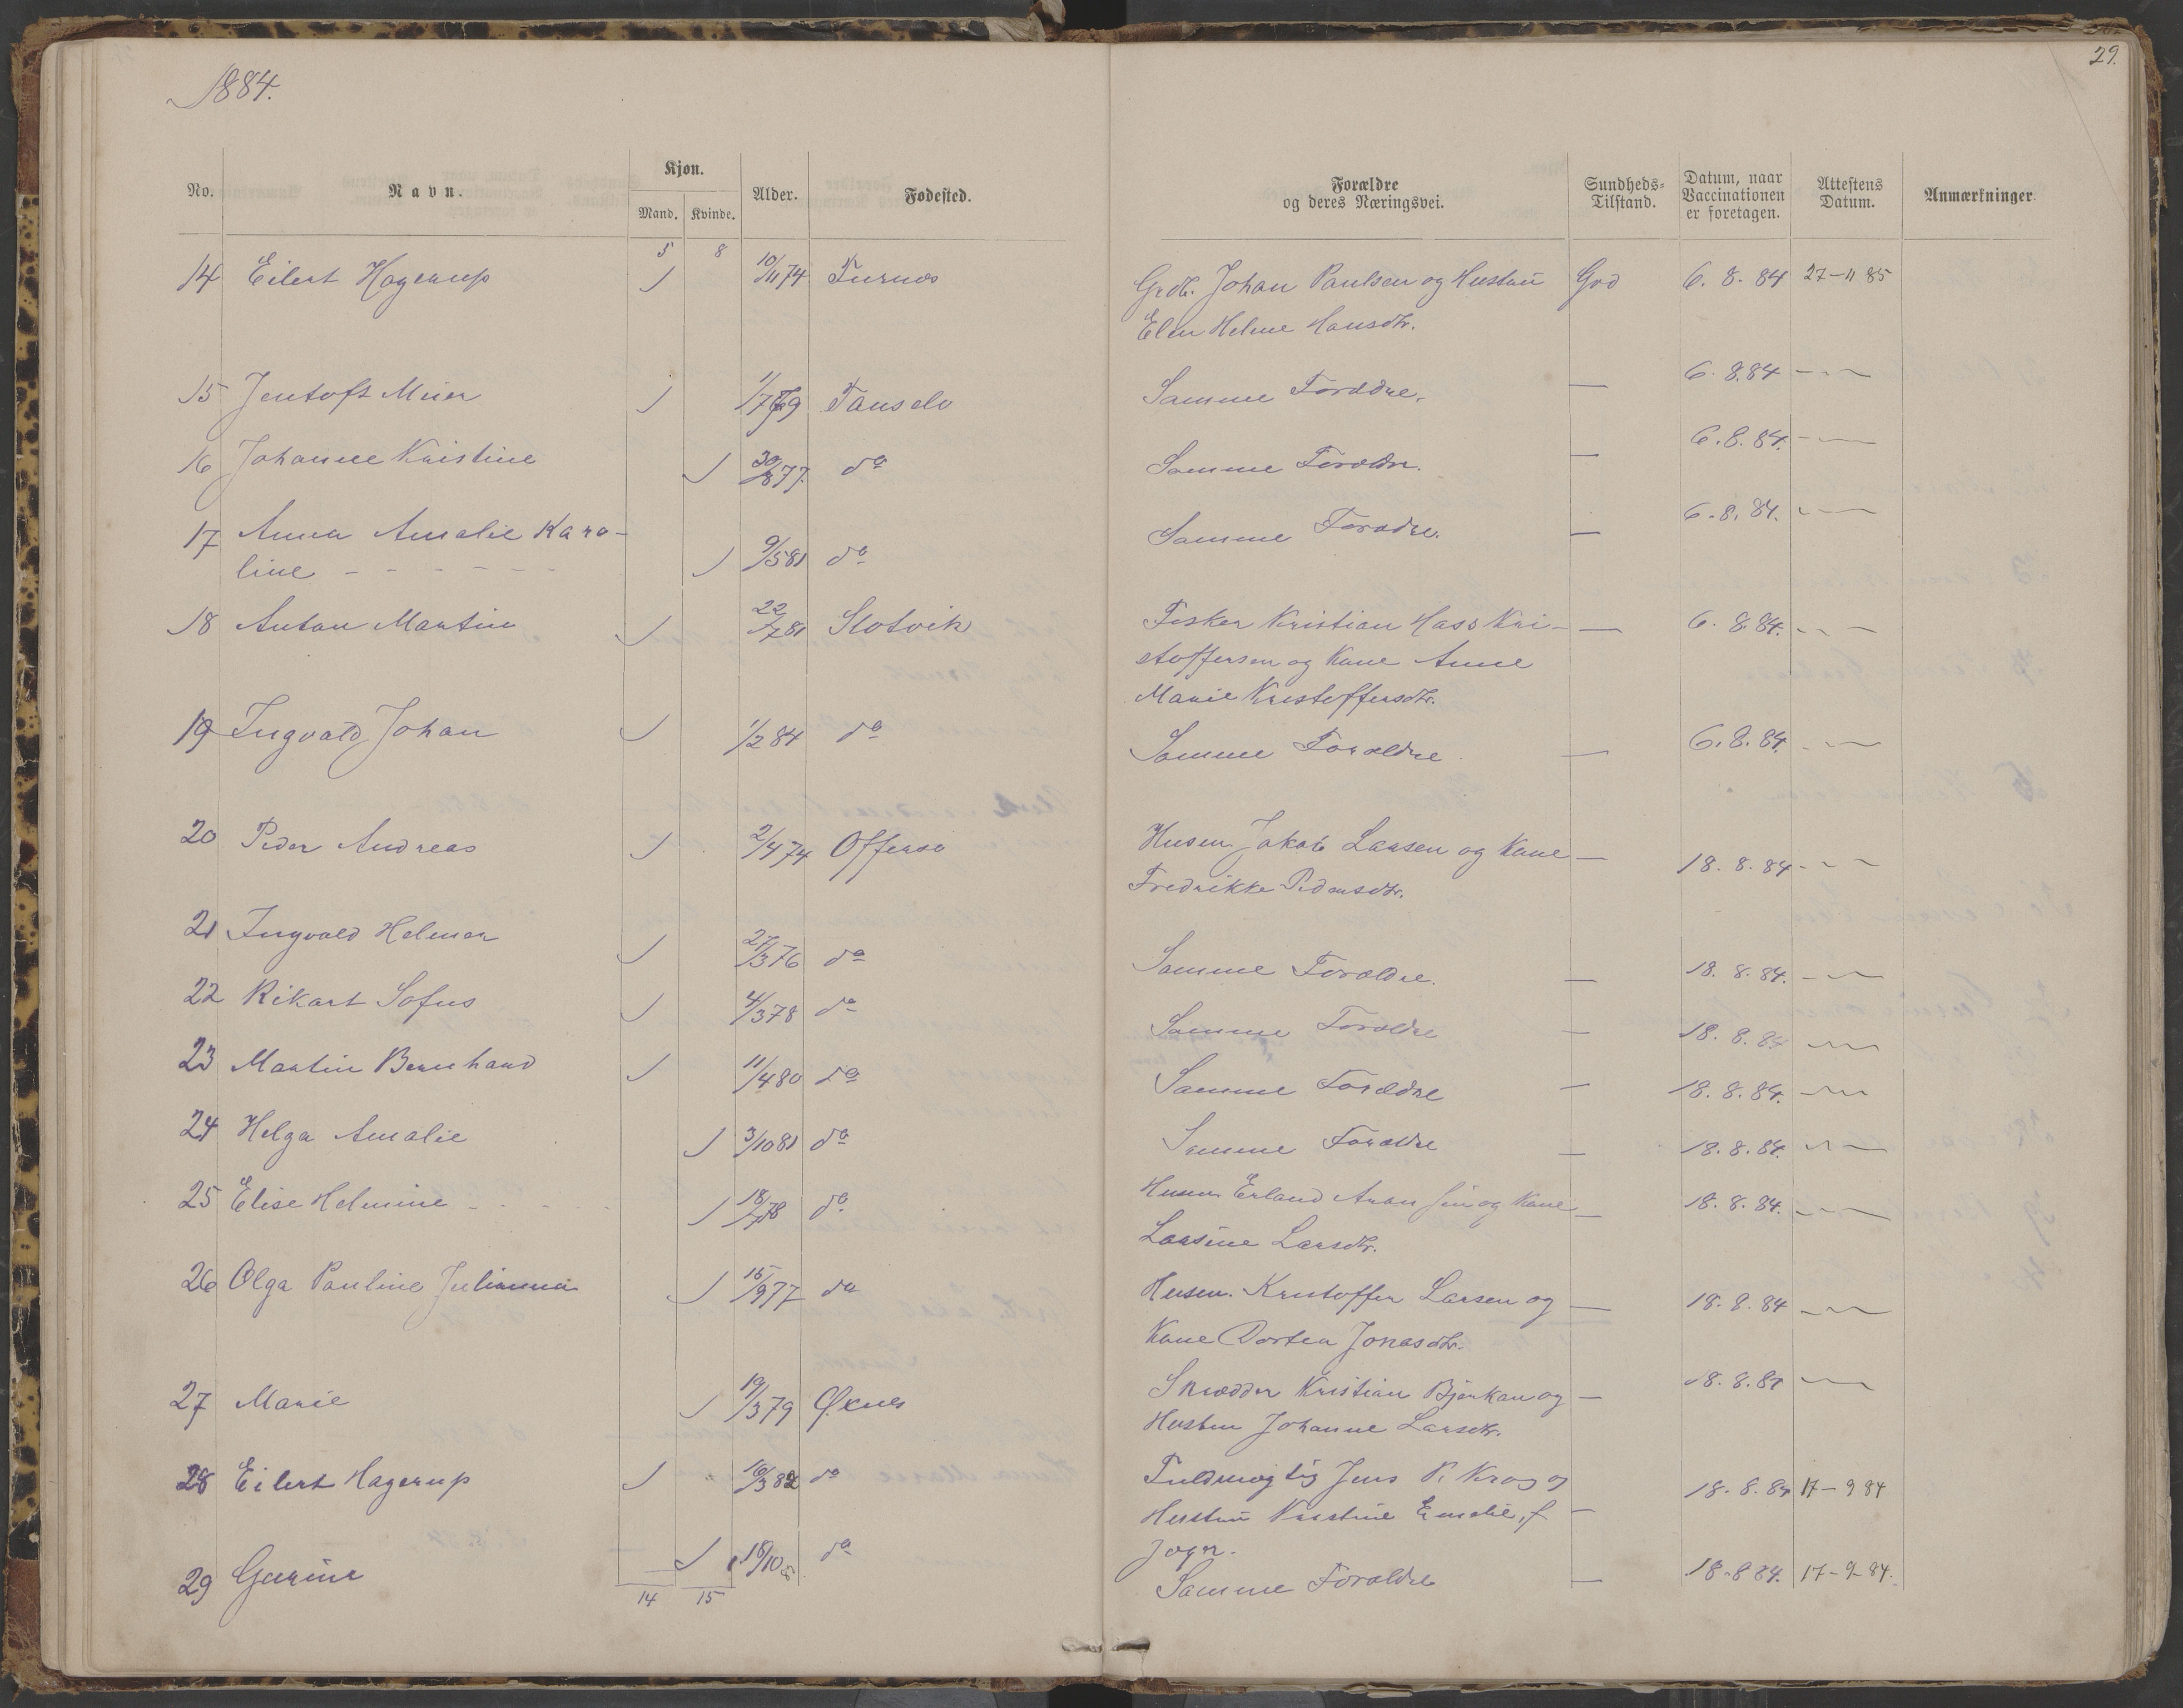 1884.
29.
No. Navn. Kjøn. Mand. Kvinde. Alder. Fødested. Forældre og deres Næringsvei. Sundheds-Tilstand. Datum, naar Vaccinationen er foretagen. Attestens Datum. Anmærkninger.
5 8
14 Eilert Hagerup 10/11 74 Grdb. Johan Paulsen og Hustru God 6. 8. 84 27-11 85
Elen Helene Hansdtr.
15 Jentoft Meier Samme Forældre. — 6. 8. 84
16 Johanne Kristine 30/8 77. do Samme Forældre. — 6. 8. 84.
17 Anna Amalie Karo- Samme Forældre. — 6. 8. 84.
line - - - - - - 9/5 81 do
18 Anton Martin 22/7 81 Slotvik Fisker Kristian Hass Kri- — 6. 8. 84.
stoffersen og Kone Anne
Marie Kristoffersdtr.
19 Ingvald Johan 1/2 84 do Samme Forældre — 6. 8. 84.
20 Peder Andreas 2/4 74 Offersø Husm. Jakob Larsen og Kone — 18. 8. 84
Fredrikke Pedersdtr.
21 Ingvald Helmer 27/3 76 do Samme Forældre. — 18. 8. 84.
22 Rikart Sofus 4/3 78 do Samme Forældre — 18. 8. 84
23 Martin Bernhard 11/4 80 do Samme Forældre — 18. 8. 84.
24 Helga Amalie 3/10 81 do Samme Forældre — 18. 8. 84.
25 Elise Helmine 18/7 78 do Husm. Erland Aronsen og Kone — 18. 8. 84.
Larsine Larsdtr.
26 Olga Pauline Julianna 15/9 77 do Husm. Kristoffer Larsen og — 18. 8. 84
Kone Dortea Jonasdtr.
27 Marie 19/3 79 Øxnes Skrædder Kristian Bjørkan og — 18. 8. 84
Hustru Johanne Larsdtr.
28 Eilert Hagerup 16/3 82 do Fuldmægtig Jens P. Krog og 18. 8. 84 17-9 84
Hustru Kristine Emelie, f —
29 18/10 do Samme Forældre — 18-8 84. 17-9-84.
14 15